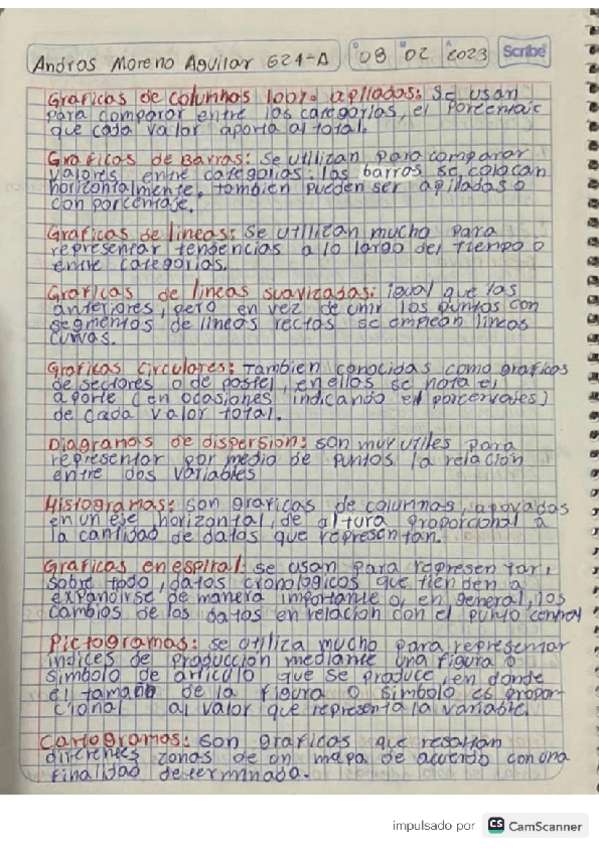 Andros Moreno Aguilar 621-A D 08 M 02 A 2023 Scribe
Graficas de columnas 100% apliadas: Se usan
para comparar entre las categorias, el Porcentaje
que cada valor aporta al total.
Graficos de Barras: Se utilizan para comparar
valores entre categorias. las barras se colocan
horizontalmente. tambien pueden ser apiladas o
con porcentaje.
Graficas de lineas: Se utilizan mucho para
representar tendencias a lo largo del tiempo o
entre categorias.
Graficas de lineas suavizadas: igual que las
anteriores, pero en vez de unir los puntos con
segmentos de lineas rectas se emplean lineas
curvas.
Graficas Circulares: Tambien conocidas como graficos
de sectores o de pastel, en ellos se nota el
aporte (en ocasiones indicando el porcentajes)
de cada valor total.
Diagramas de dispersion: son muy utiles para
representar por medio de puntos la relacion
entre dos variables
Histogramas: son graficas de columnas, apoyadas
en un eje horizontal, de altura proporcional a
la cantidad de datos que representan.
Graficas en espiral: se usan para representar,
sobre todo, datos cronologicos que tienden a
expandirse de manera importante o, en general, los
cambios de los datos en relacion con el punto central
Pictogramas: se utiliza mucho para representar
indices de produccion mediante una figura o
simbolo de articulo que se produce, en donde
el tamaño de la figura o simbolo es propor-
cional al valor que representa la variable.
Cartogramas: son graficas que resaltan
diferentes zonas de un mapa de acuerdo con una
finalidad determinada.
impulsado por CS CamScanner